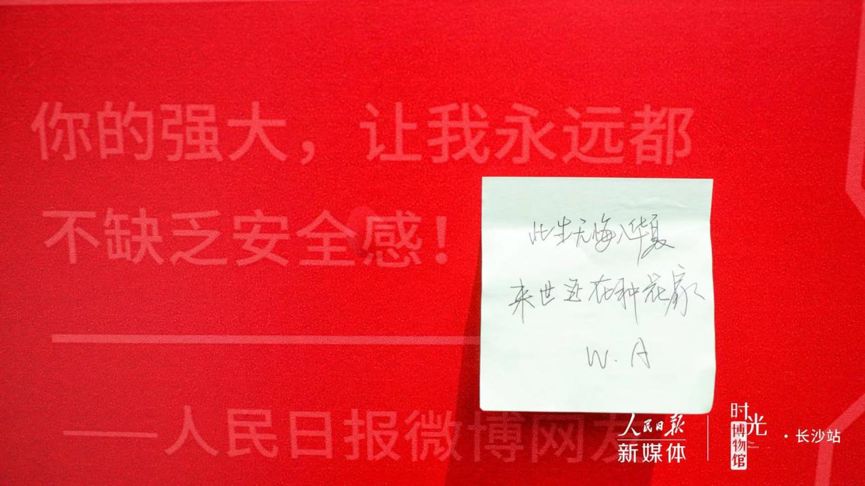 你的强大，让我永远都
不缺乏安全感！
此生无悔入华夏
来世还在种花家
W.A
——人民日报微博网友
人民日报
新媒体
时光
博物馆
·长沙站